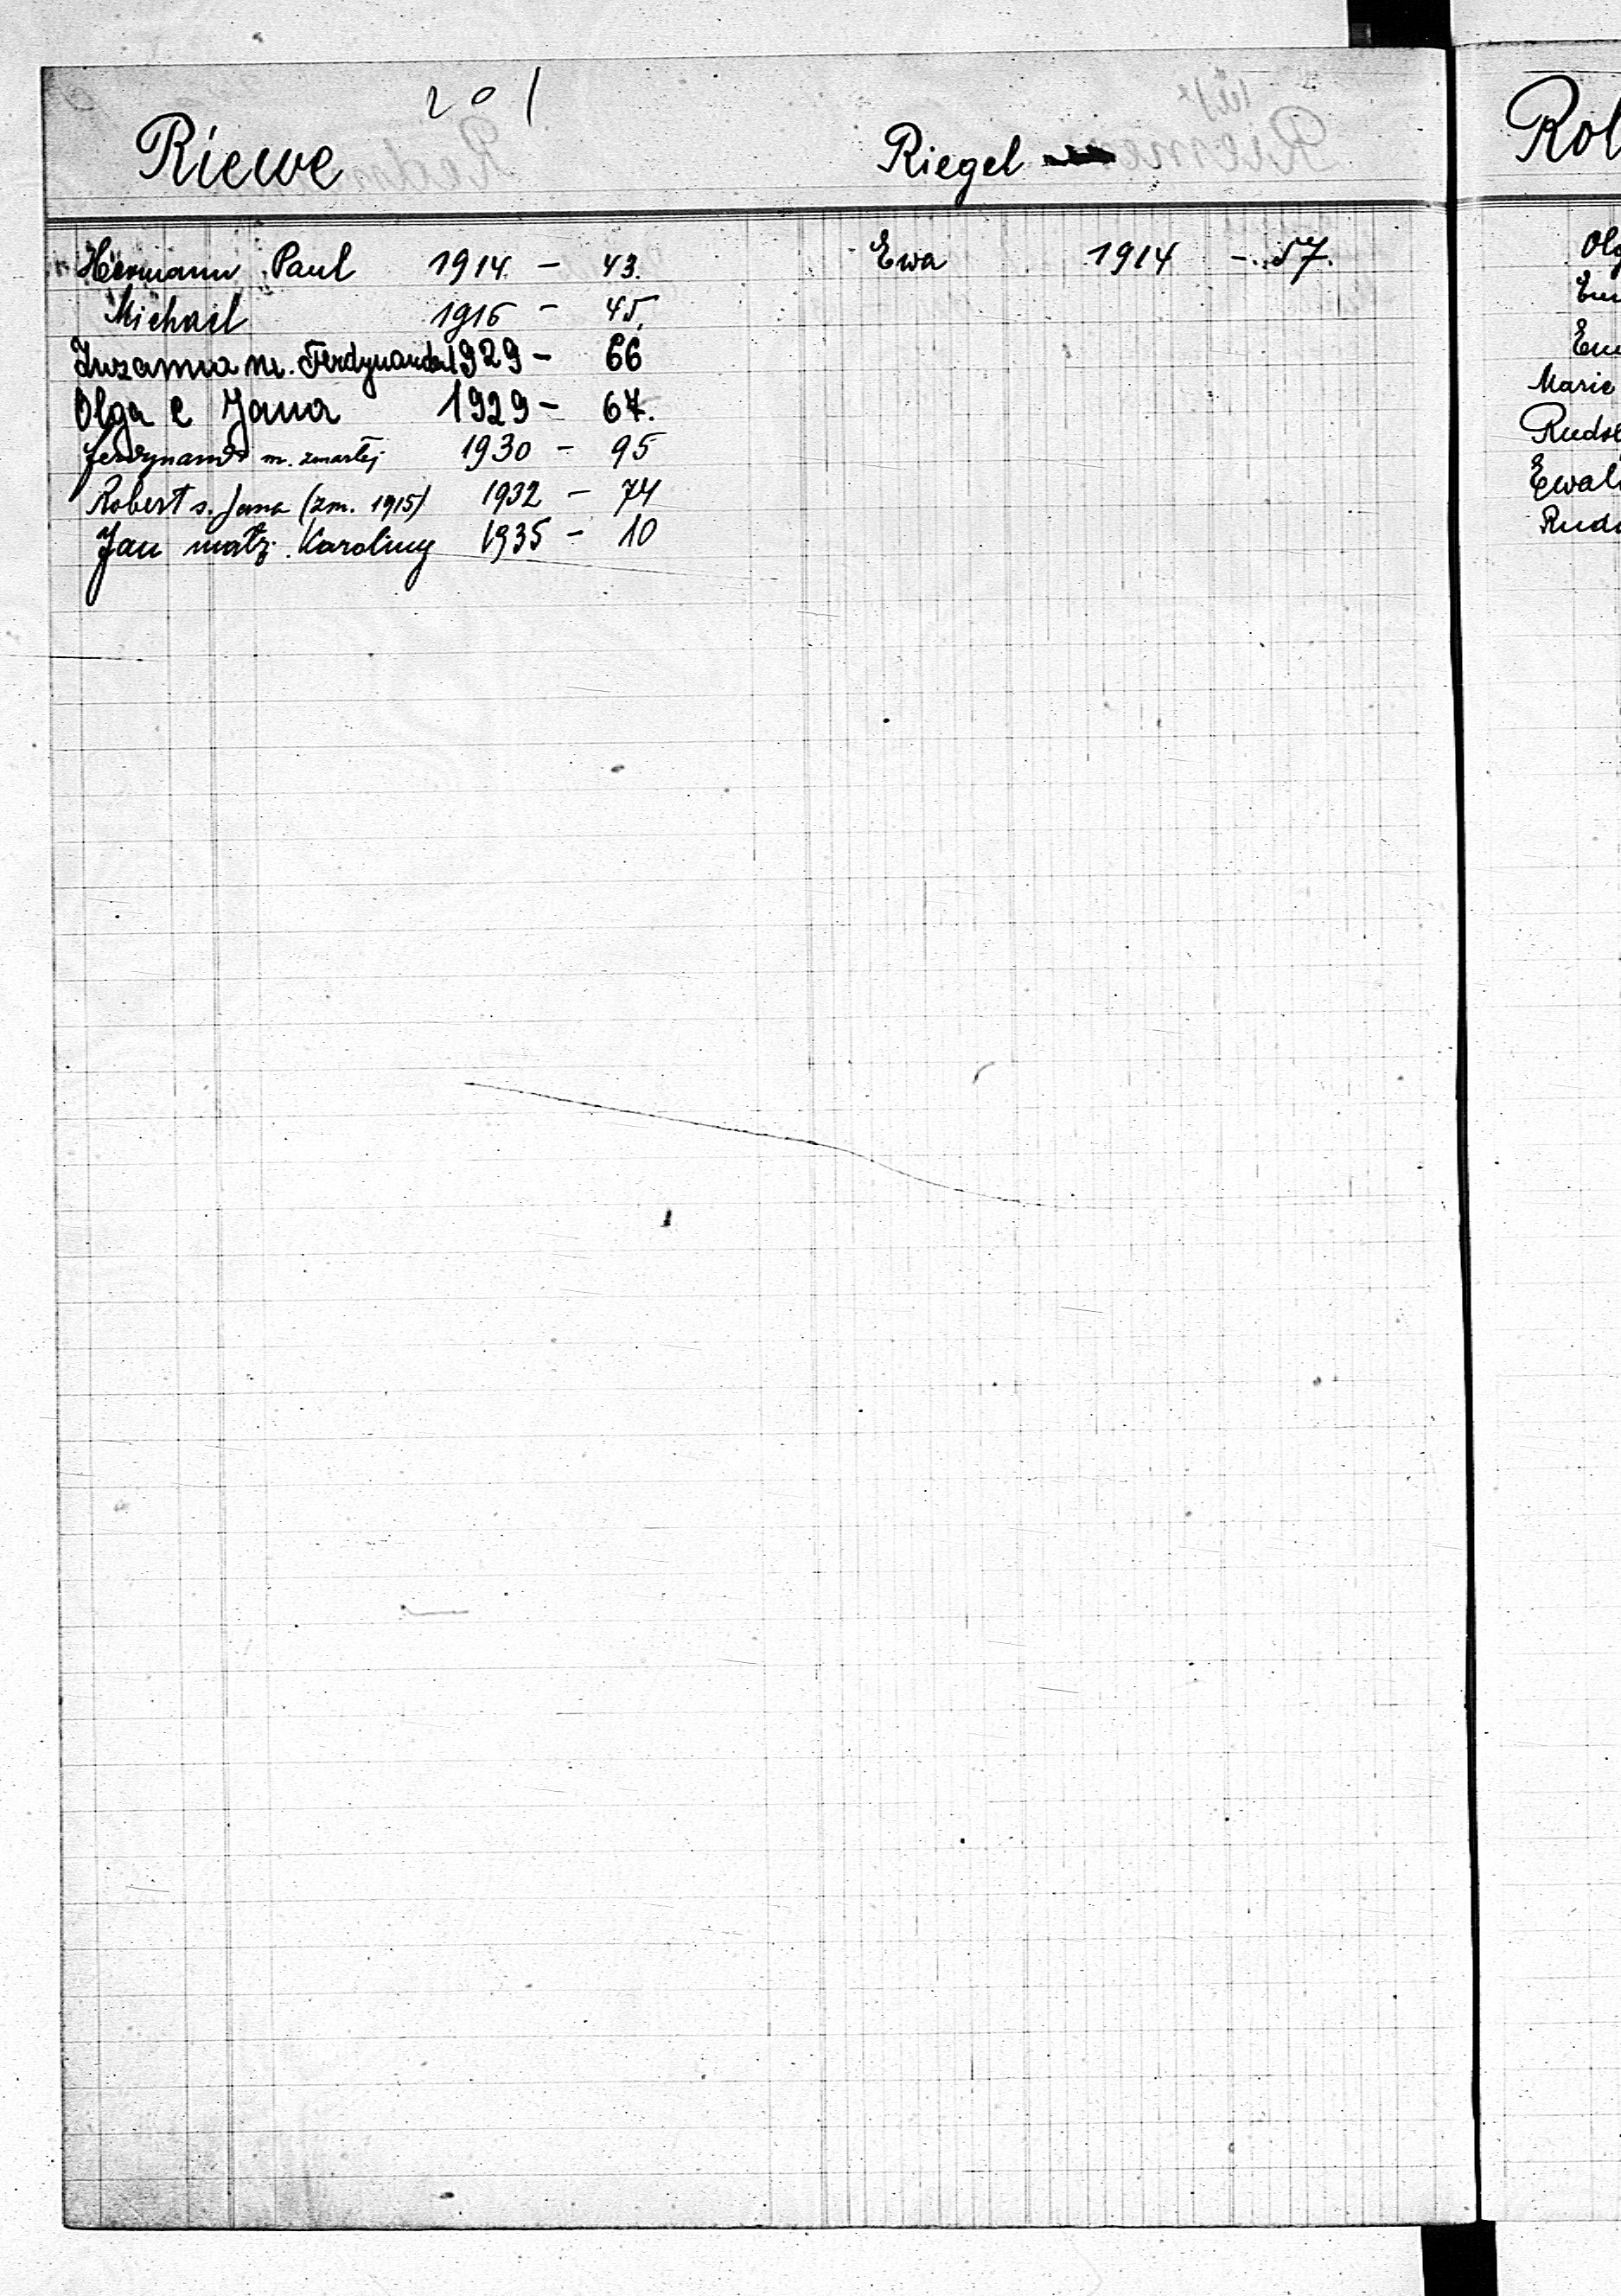 201
Riewe
Hermann Paul 1914 - 43.
Michael 1916 - 45.
Zuzanna m. Ferdynanda 1929 - 66
Olga c Jana 1929 - 67.
Ferdynand m. zmarłej 1930 - 95
Robert s. Jana (zm. 1915) 1932 - 74
Jan małż. Karoliny 1935 - 10
Riegel
Ewa 1914 - 57.
Marie